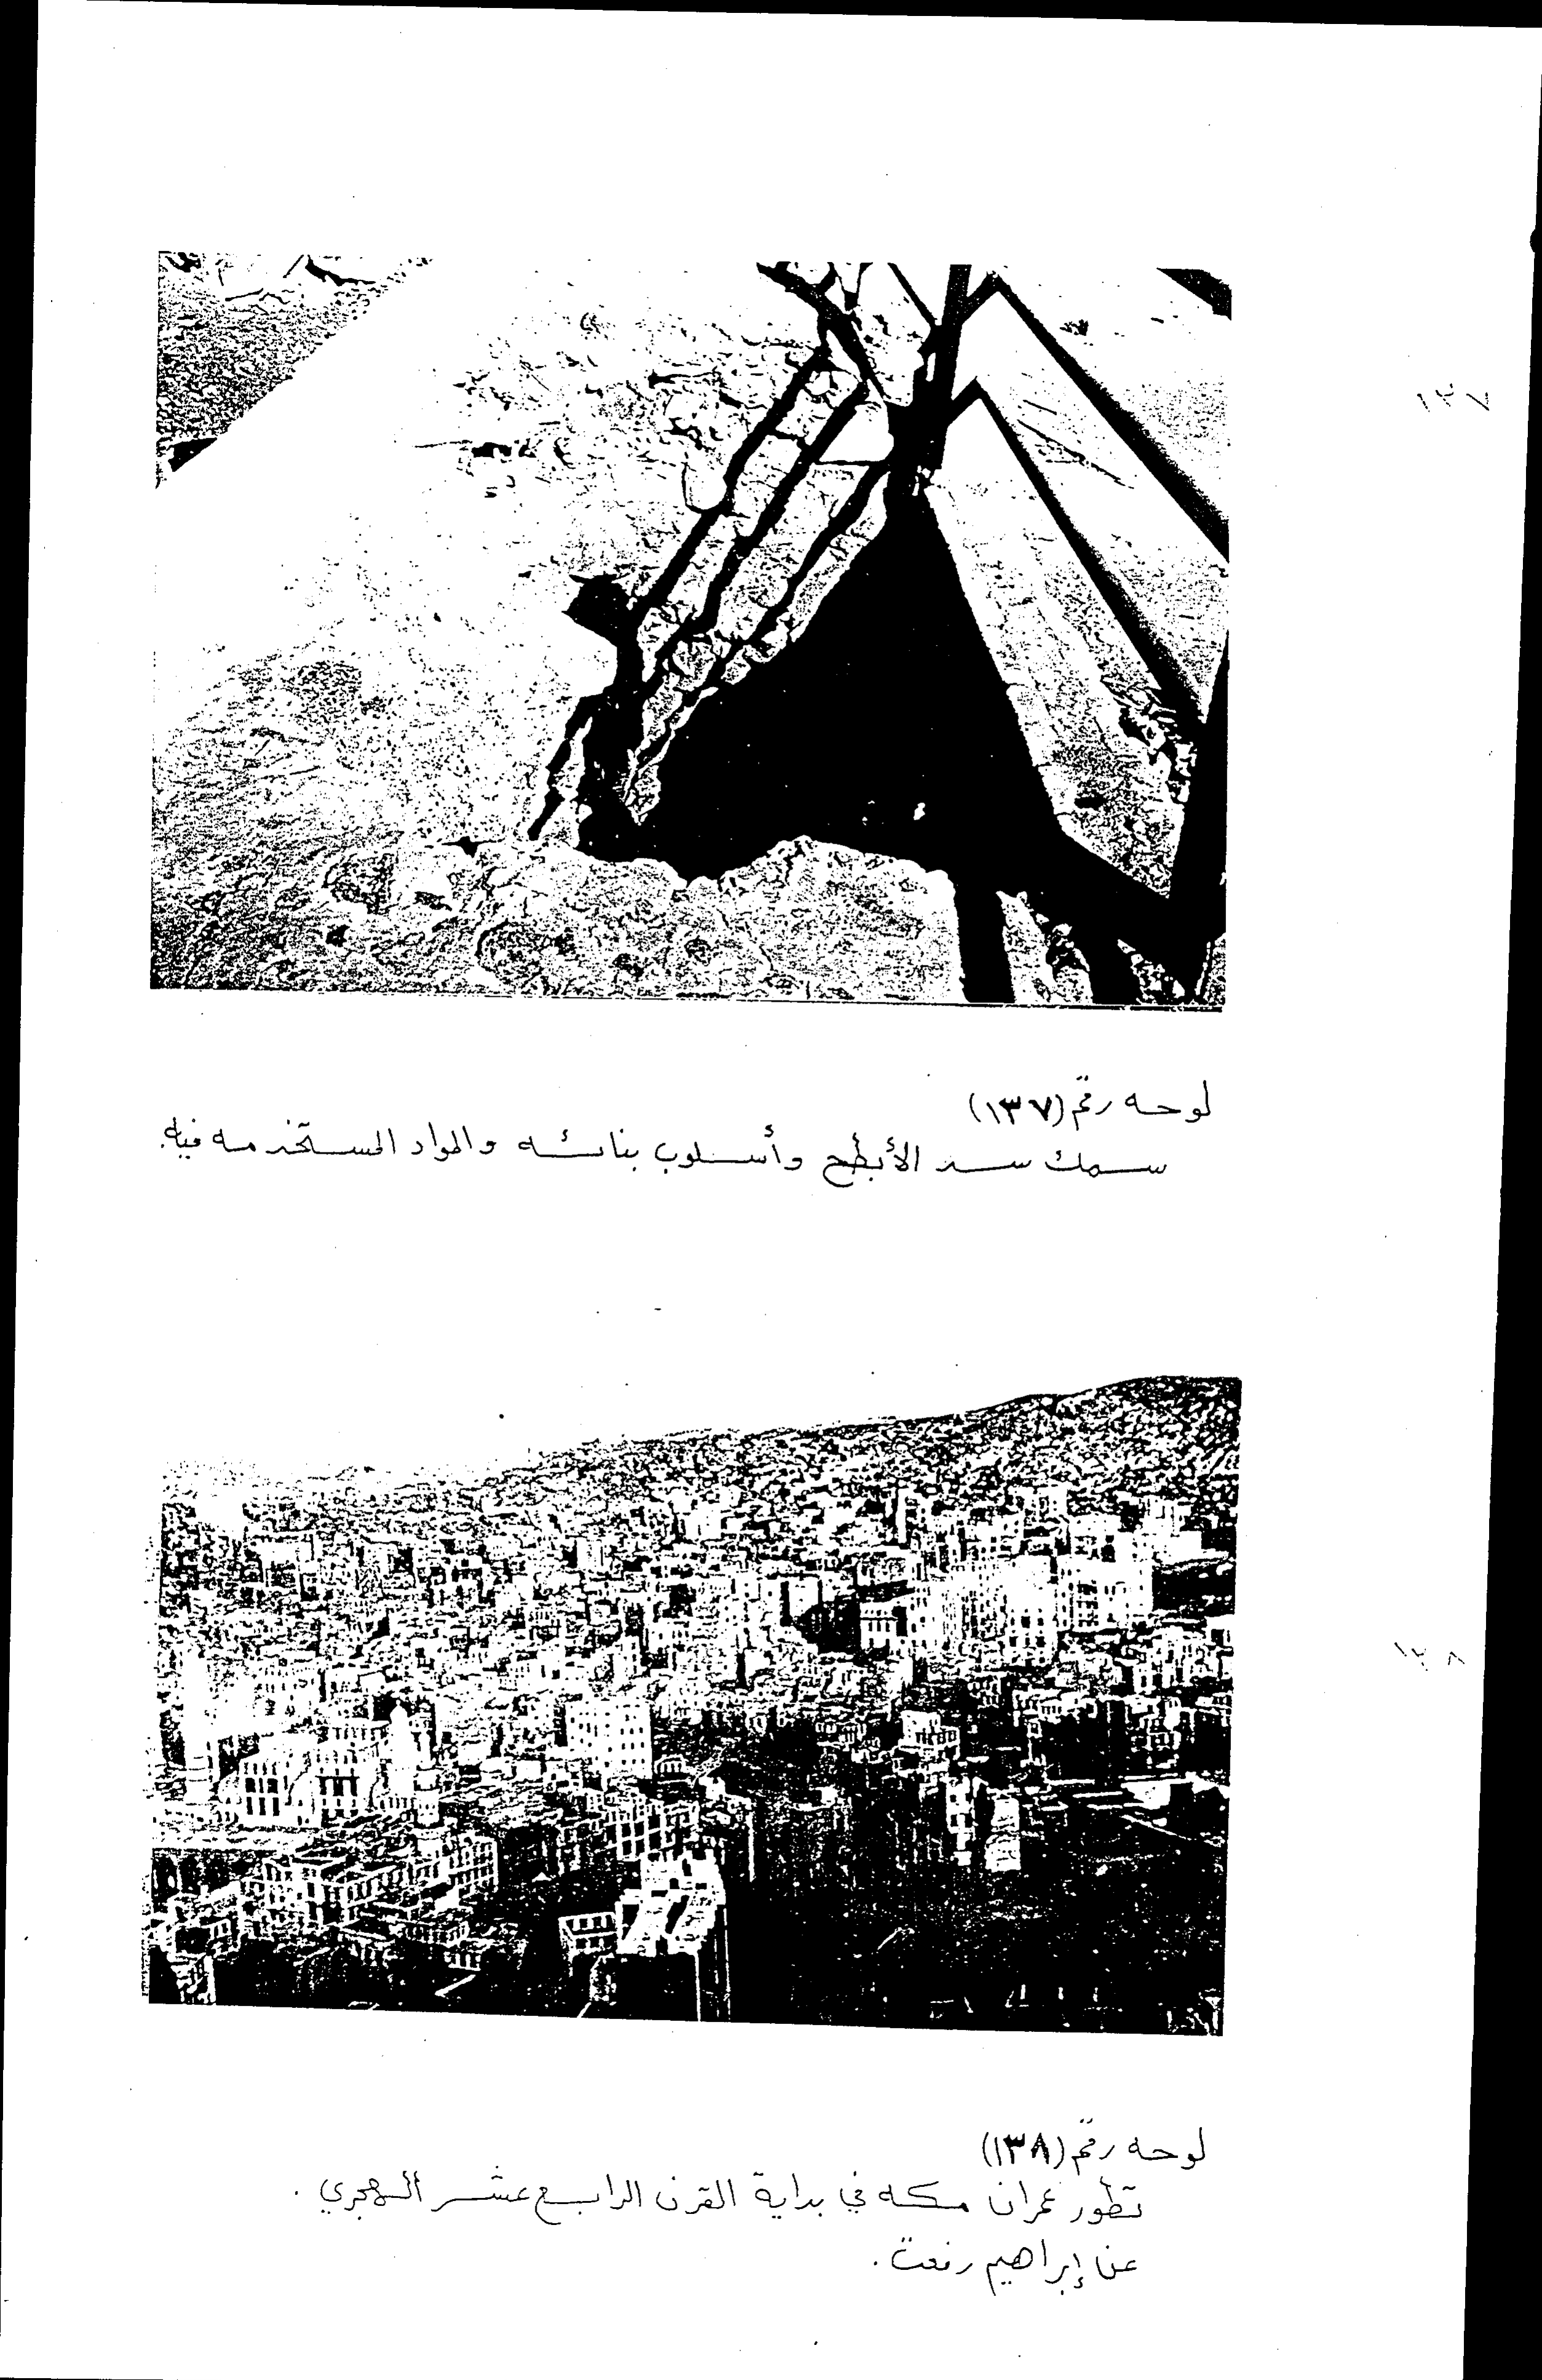 لوحه رقم (١٣٧)
سمك سد الأبطح وأسلوب بنائه والمواد المستخدمه فيه.
لوحه رقم (١٣٨)
تطور عمران مكه في بداية القرن الرابع عشر الهجري .
عن إبراهيم رفعت .